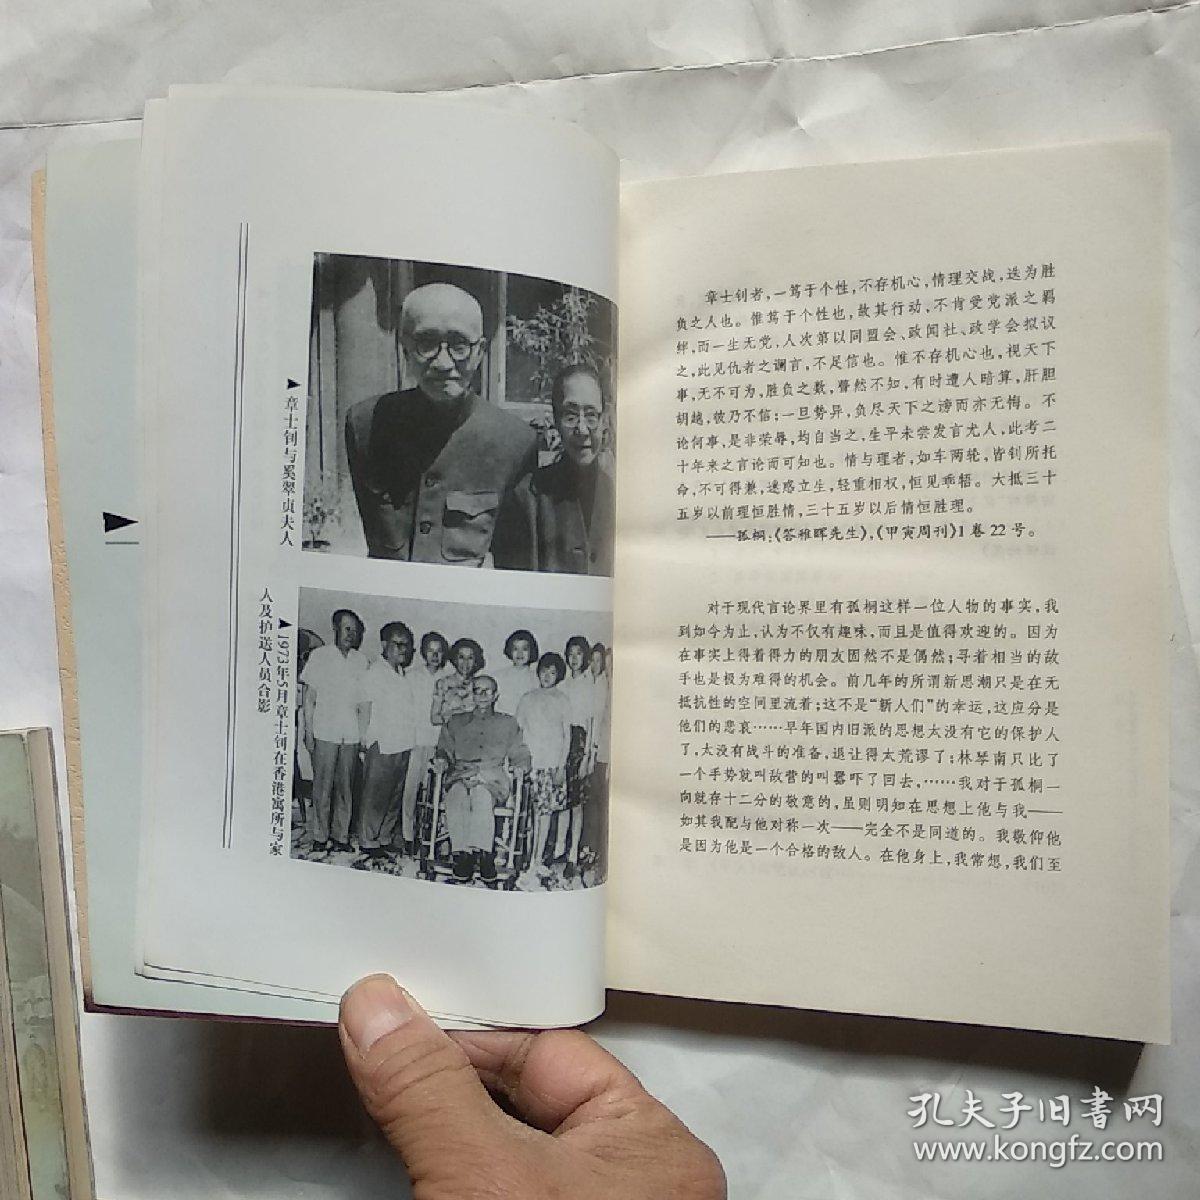 ▲章士钊与奚翠贞夫人
▲1973年5月章士钊在香港寓所与家
人及护送人员合影
章士钊者，一笃于个性，不存机心，情理交战，迭为胜
负之人也。惟笃于个性也，故其行动，不肯受党派之羁
绊，而一生无党，人次第以同盟会、政闻社、政学会拟议
之，此见仇者之谰言，不足信也。惟不存机心也，视天下
事，无不可为，胜负之数，瞢然不知，有时遭人暗算，肝胆
胡越，彼乃不信；一旦势异，负尽天下之谤而亦无悔。不
论何事，是非荣辱，均自当之，生平未尝发言尤人，此考二
十年来之言论而可知也。情与理者，如车两轮，皆钊所托
命，不可得兼，迷惑立生，轻重相权，恒见乖牾。大抵三十
五岁以前理恒胜情，三十五岁以后情恒胜理。
——孤桐：《答稚晖先生》，《甲寅周刊》1卷22号。
对于现代言论界里有孤桐这样一位人物的事实，我
到如今为止，认为不仅有趣味，而且是值得欢迎的。因为
在事实上得着得力的朋友固然不是偶然；寻着相当的敌
手也是极为难得的机会。前几年的所谓新思潮只是在无
抵抗性的空间里流着；这不是“新人们”的幸运，这应分是
他们的悲哀……早年国内旧派的思想太没有它的保护人
了，太没有战斗的准备，退让得太荒谬了；林琴南只比了
一个手势就叫敌营的叫嚣吓了回去，……我对于孤桐一
向就存十二分的敬意的，虽则明知在思想上他与我——
如其我配与他对称一次——完全不是同道的。我敬仰他
是因为他是一个合格的敌人。在他身上，我常想，我们至
孔夫子旧書网
www.kongfz.com